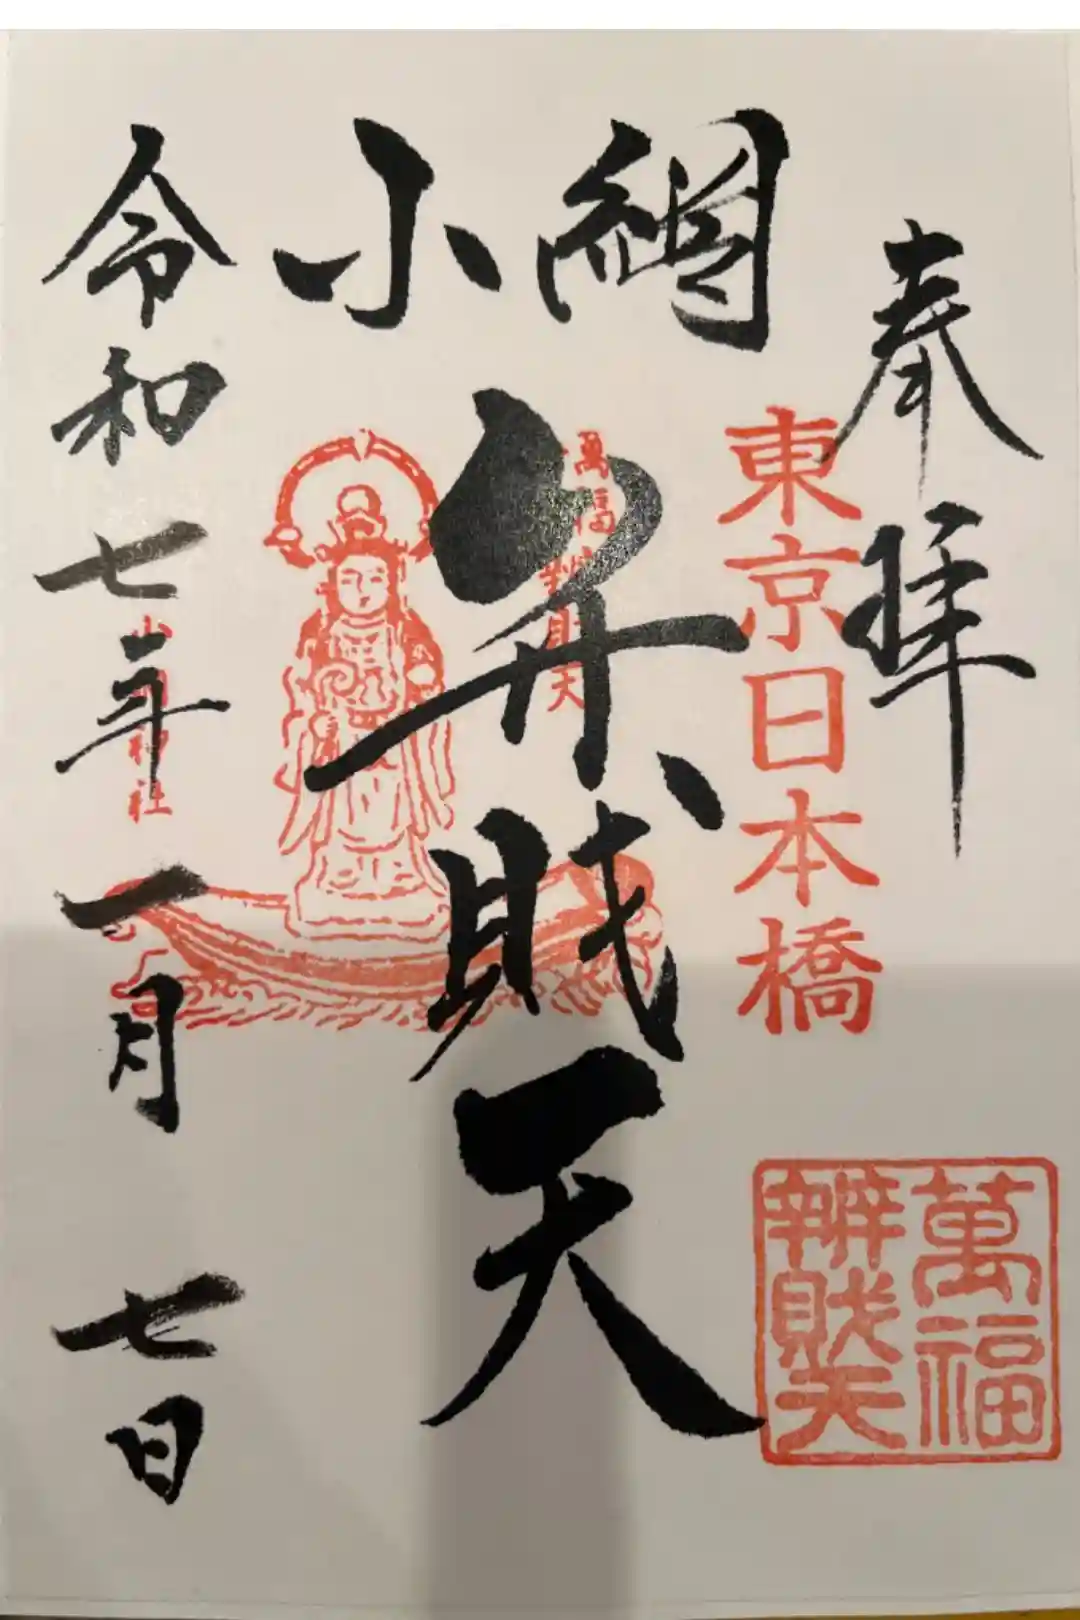 奉拝
東京日本橋
萬福
辨財天
小網
弁財天
萬福
辨財天
小網神社
令和七年一月七日